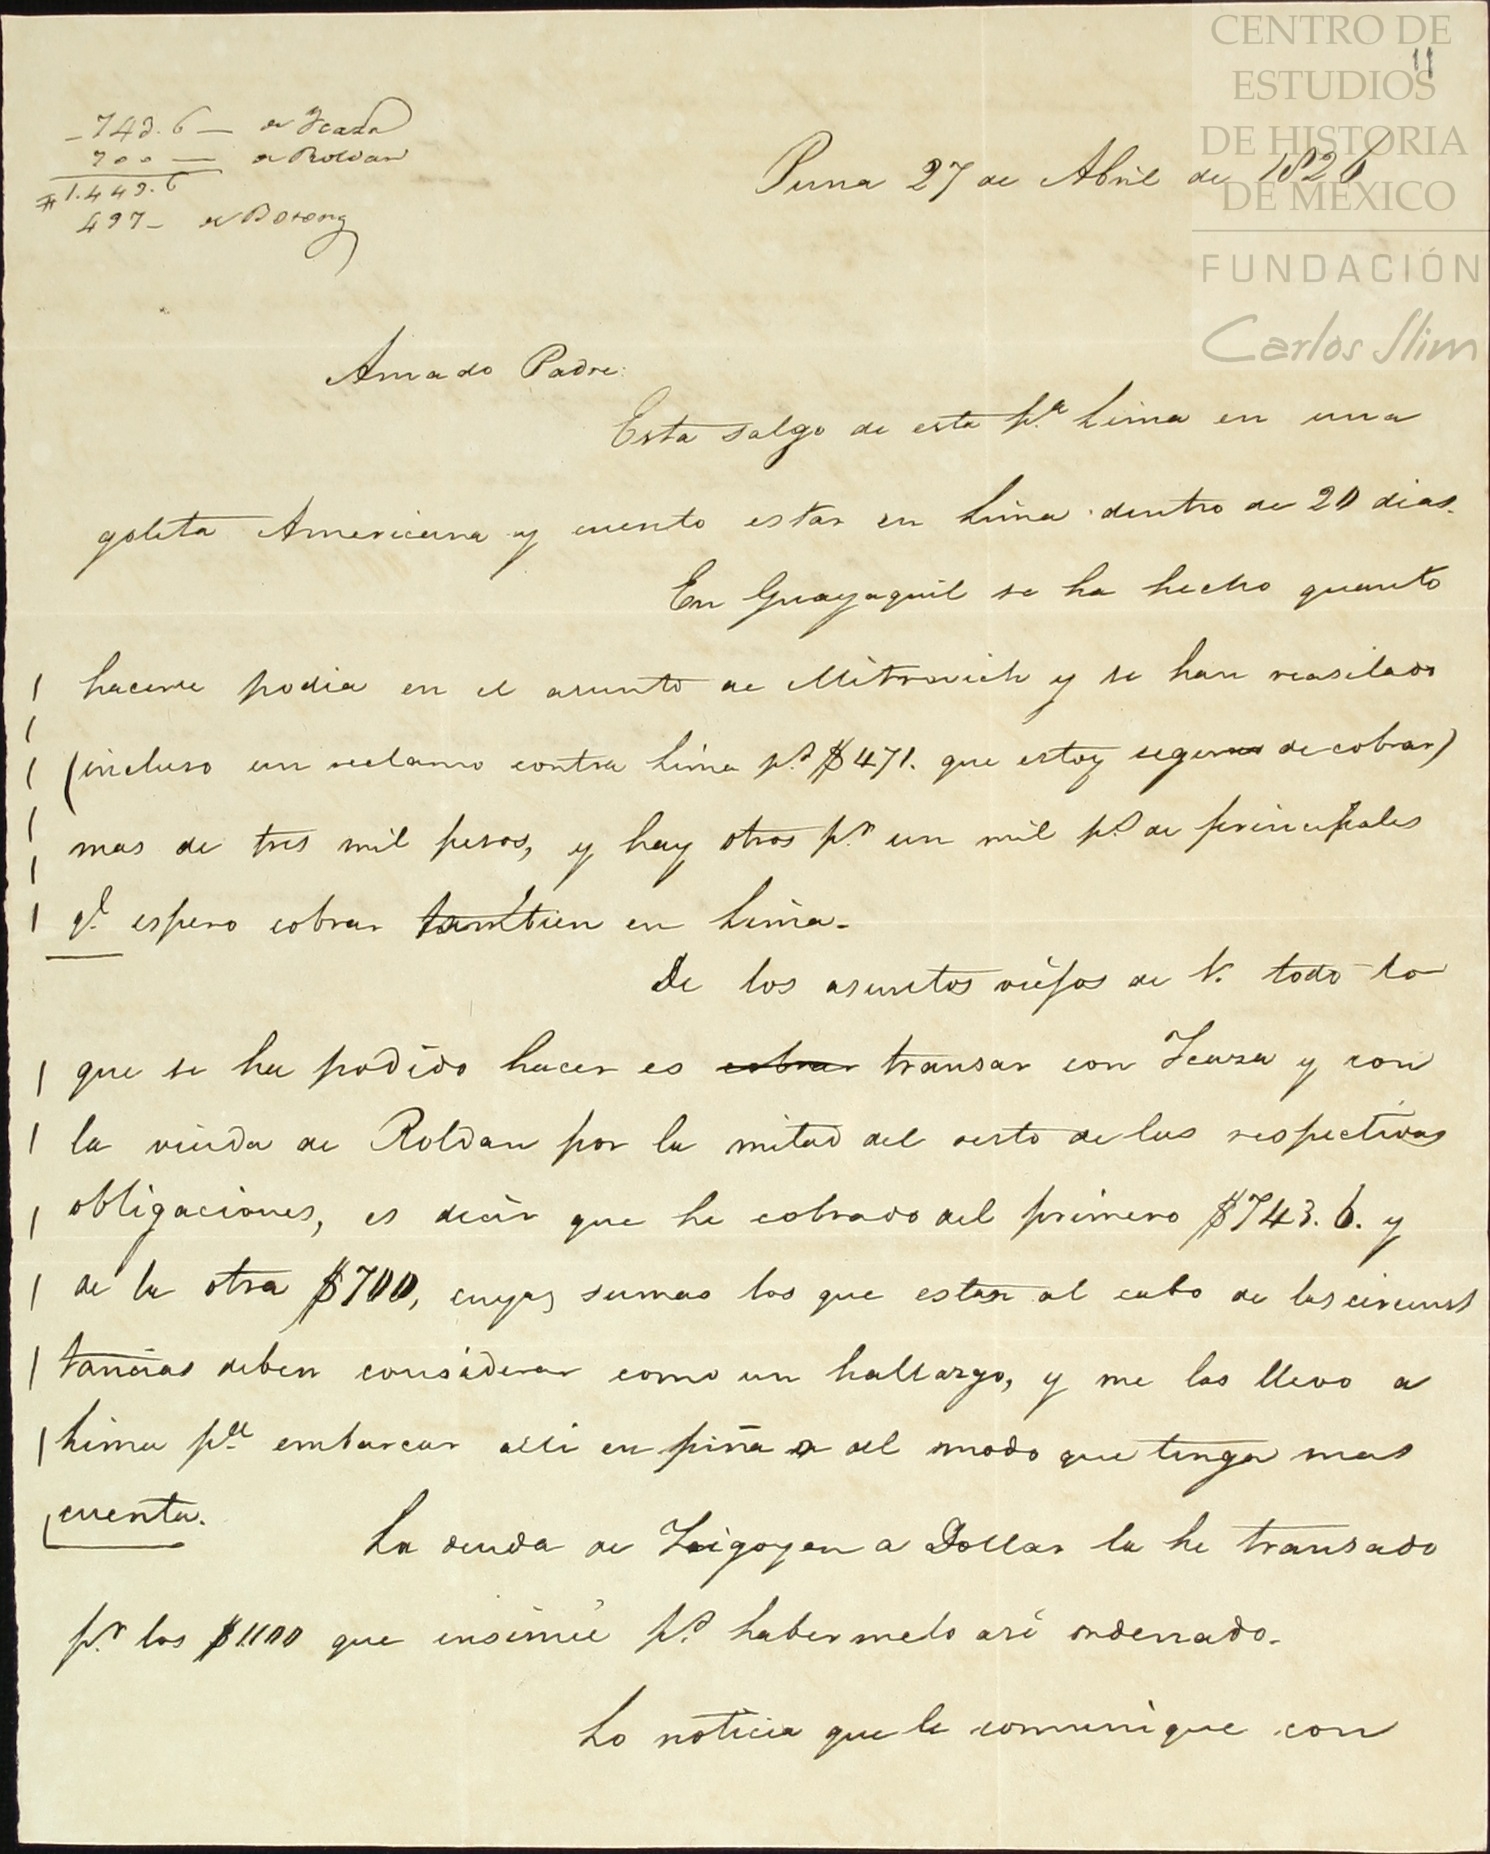 CENTRO DE
ESTUDIOS
DE HISTORIA
DE MÉXICO
FUNDACIÓN
Carlos Slim
11
743.6 — de Icaza
700 — de Roldan
1.443.6
497 —
Puna 27 de Abril de 1826
Amado Padre:
Esta salgo de esta p.a Lima en una
goleta Americana y cuento estar en Lima dentro de 20 dias.
En Guayaquil se ha hecho quanto
hacerse podia en el asunto de Mitrovich y se han recaudado
(incluso un reclamo contra Lima p.r $471. que estoy seguro de cobrar)
mas de tres mil pesos, y hay otros p.r un mil p.s de principales
q.e espero cobrar tambien en Lima.
De los asuntos viejos de V. todo lo
que se ha podido hacer es cobrar transar con Icaza y con
la viuda de Roldan por la mitad del resto de las respectivas
obligaciones, es decir que he cobrado del primero $743.6. y
de la otra $700, cuyas sumas los que estan al cabo de las circuns
tancias deben considerar como un hallazgo, y me las llevo a
Lima p.a embarcar alli en piña o del modo que tenga mas
cuenta.
La deuda de Irigoyen a Dollar la he transado
p.r los $1100 que insinué p.r habermelo asi ordenado.
La noticia que le comuniqué con